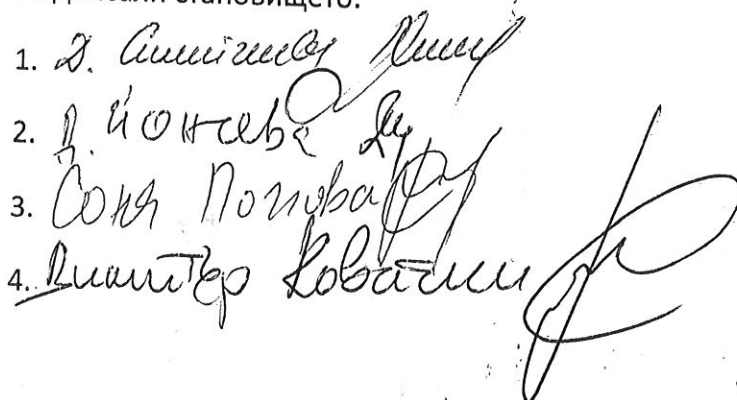 становището:
1. Д.
2. Д. Йончева
3. Соня Попова
4. Димитър Ковачки